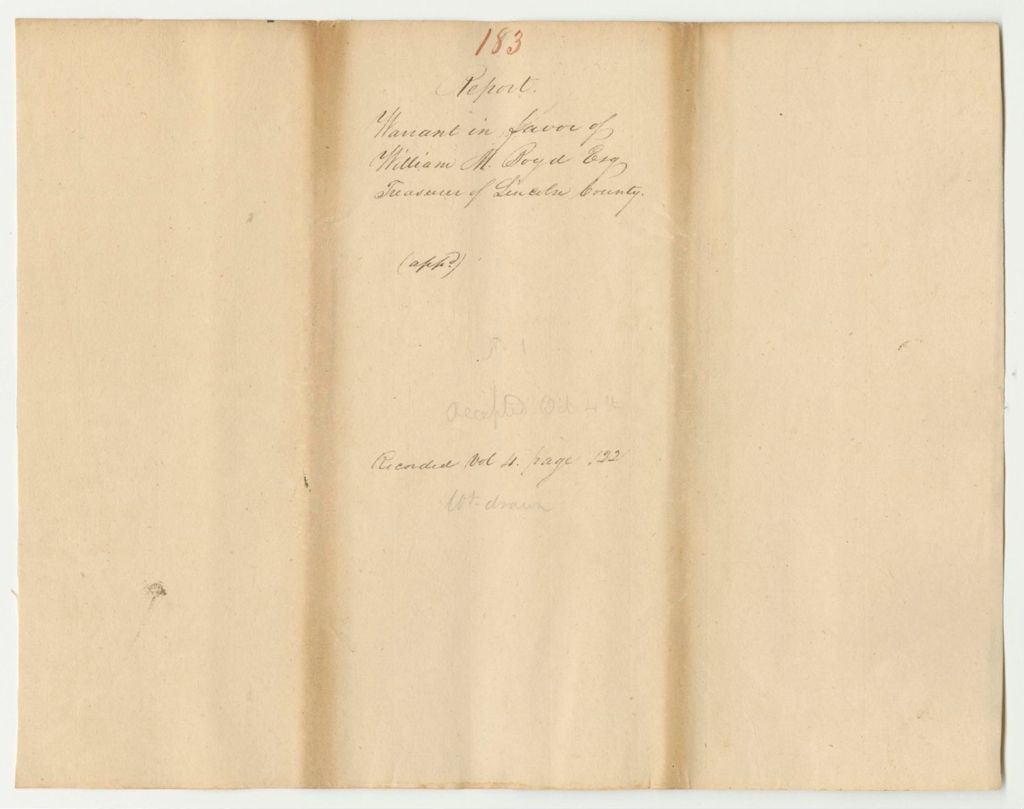 183
Report.
Warrant in favor of
William M. Boyd Esq
Treasurer of Lincoln County.
(appd)
Accepted Oct 4th
Recorded Vol 4. page 122
Wt. drawn